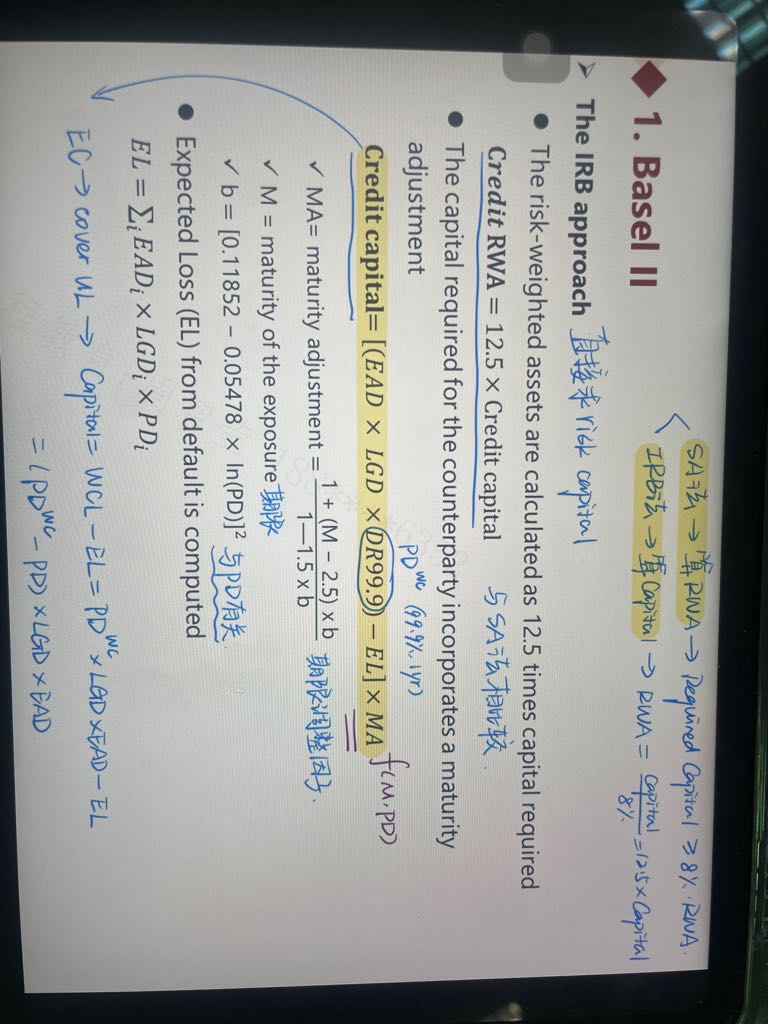 SA法 → 算RWA → Required Capital ≥ 8%·RWA.
IRB法 → 算Capital → RWA = Capital / 8% = 12.5 × Capital
◆ 1. Basel II
➢ The IRB approach 直接求 risk capital
● The risk-weighted assets are calculated as 12.5 times capital required
Credit RWA = 12.5 × Credit capital 与SA法相比较.
● The capital required for the counterparty incorporates a maturity
adjustment PD^WC (99.9%, 1yr)
Credit capital= [(EAD × LGD ×DR99.9) − EL] × MA f(M, PD)
✓ MA= maturity adjustment = 1 + (M − 2.5) × b / 1—1.5 × b 期限调整因子.
✓ M = maturity of the exposure 期限
✓ b = [0.11852 − 0.05478 × ln(PD)]² 与PD有关.
● Expected Loss (EL) from default is computed
EL = ∑ᵢ EADᵢ × LGDᵢ × PDᵢ
EC → cover UL → Capital = WCL − EL = PD^WC × LGD × EAD − EL
= (PD^WC − PD) × LGD × EAD